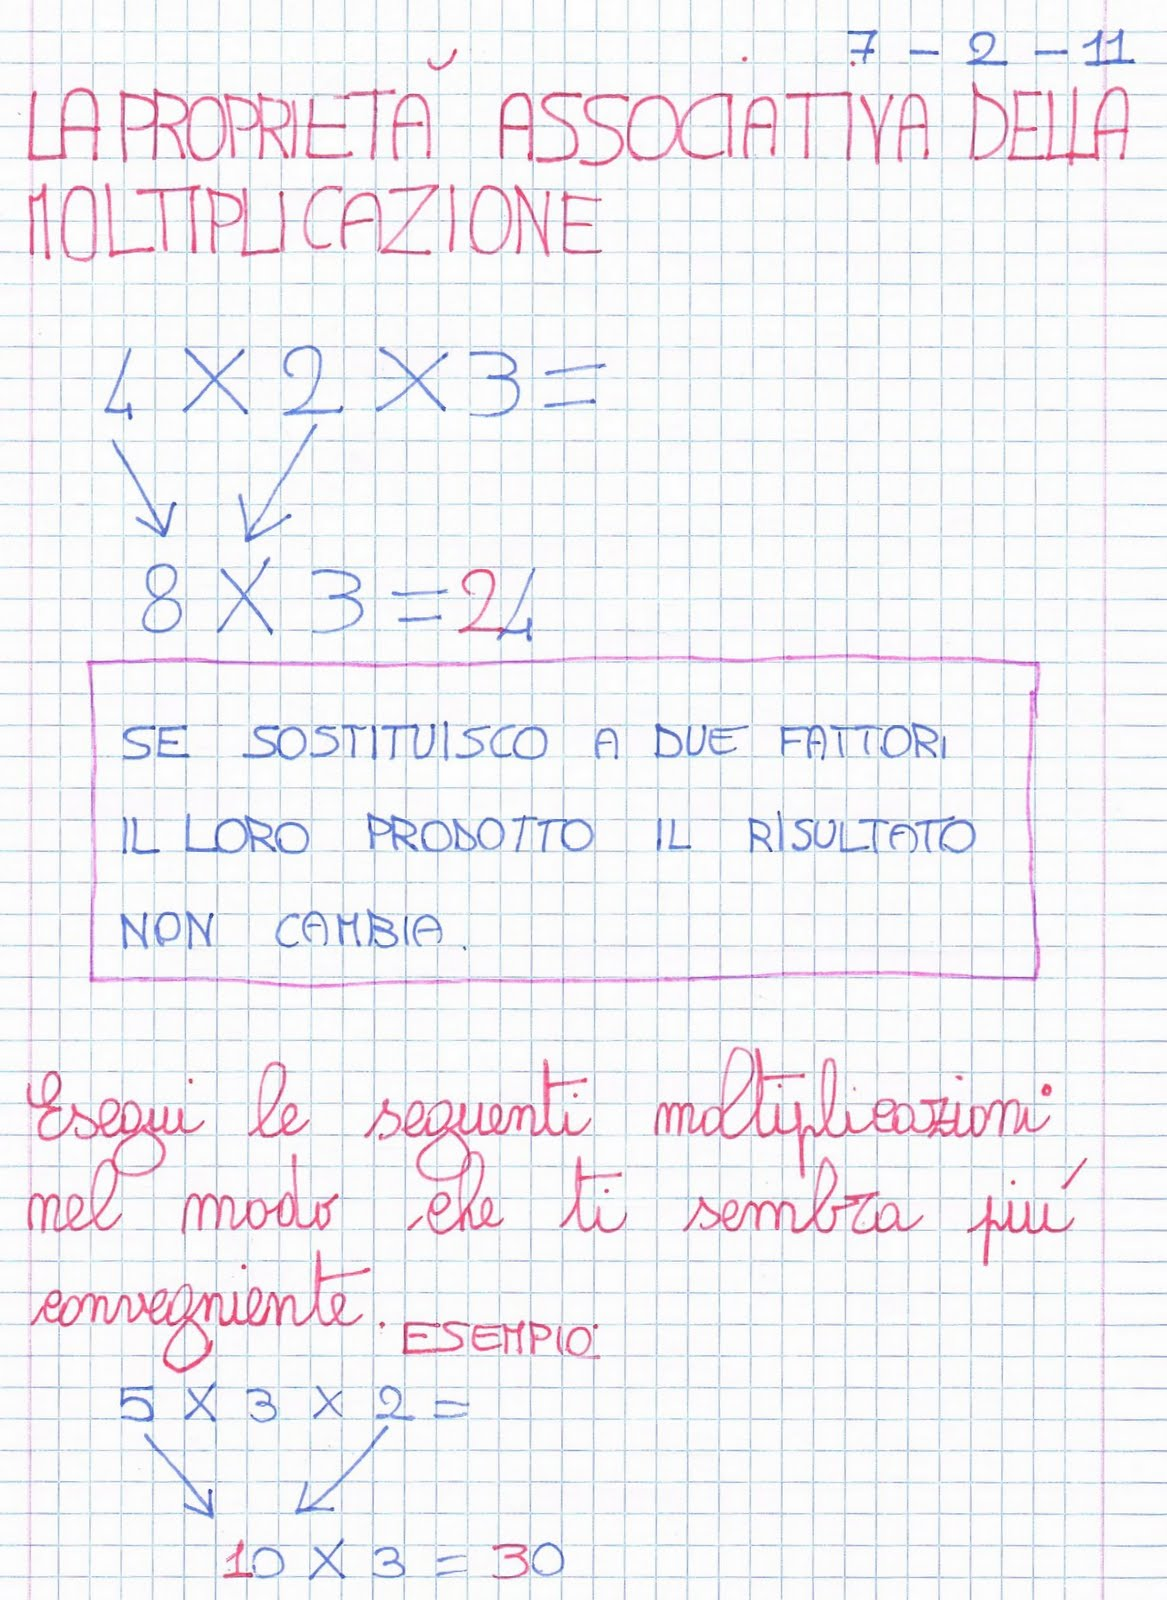 7 - 2 - 11
LA PROPRIETÀ ASSOCIATIVA DELLA
MOLTIPLICAZIONE
4 X 2 X 3 =
8 X 3 = 24
SE SOSTITUISCO A DUE FATTORI
IL LORO PRODOTTO IL RISULTATO
NON CAMBIA.
Esegui le seguenti moltiplicazioni
nel modo che ti sembra piú
convegniente.
ESEMPIO:
5 X 3 X 2 =
10 X 3 = 30